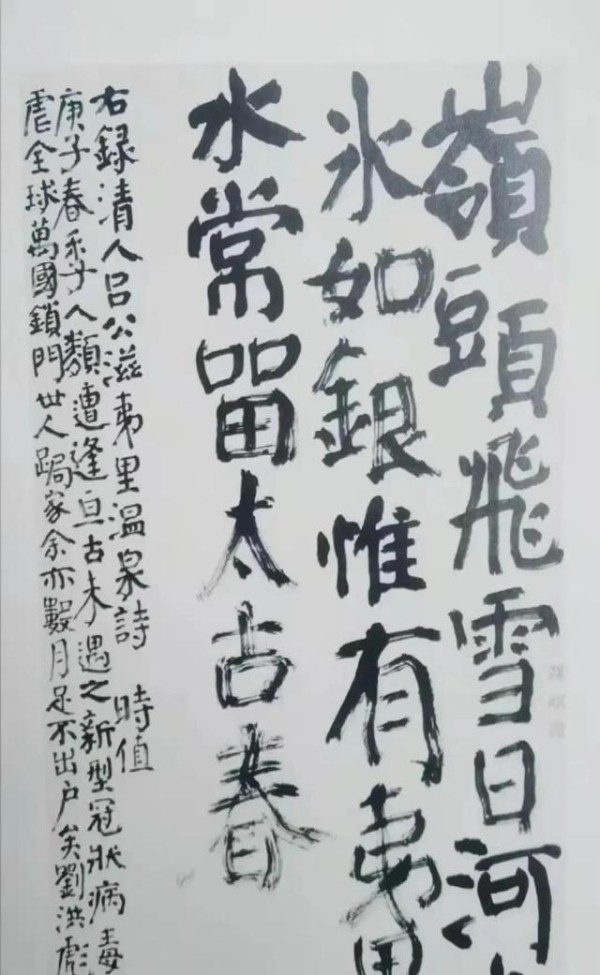 嶺頭飛雪日河
冰如銀惟有夷里
水常留太古春
右録清人吕公滋夷里温泉詩 時值
庚子春季人類遭逢亘古未遇之新型冠狀病毒
虐全球萬國鎖門世人跼家余亦數月足不出户矣劉洪彪